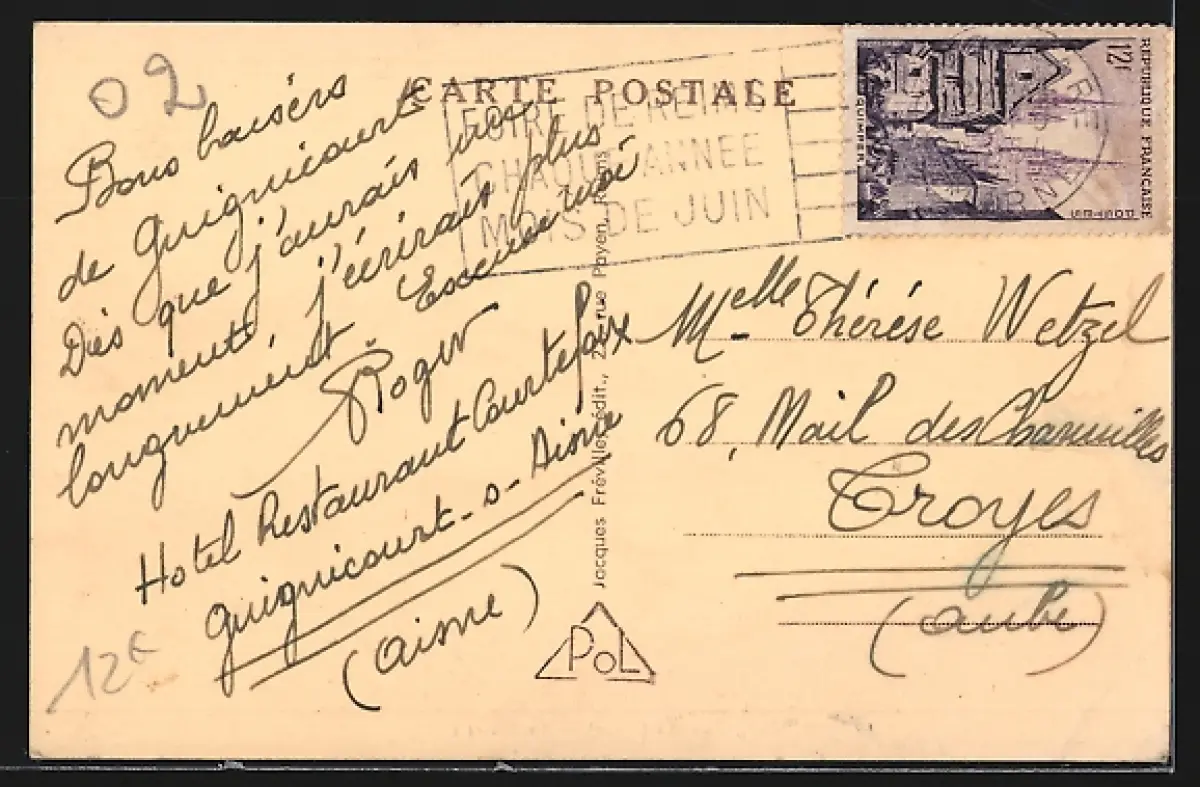 02
CARTE POSTALE
FOIRE DE REIMS
CHAQUE ANNEE
MOIS DE JUIN
12f
REPUBLIQUE FRANÇAISE
QUIMPER
Bons baisers
de Guignicourt
Dès que j'aurais un
moment, j'écrirais plus
longuement. Excuse moi
Roger
Hotel Restaurant Courtefoix
Guignicourt-s-Aisne
(Aisne)
12€
Jacques Fréville, édit., rue Payen, Reims
PoL
Melle Thérése Wetzel
68, Mail des Charmilles
Troyes
(Aube)